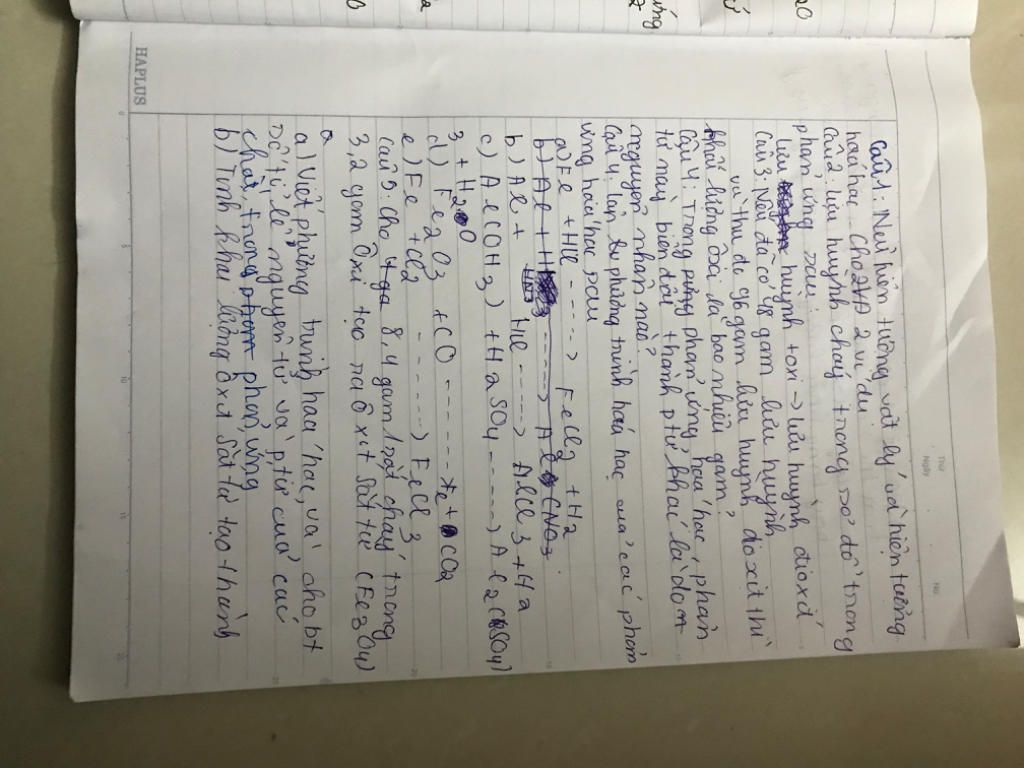 HAPLUS
Thứ
Ngày
No:
Câu 1: Nêu hiện tường vật lý và hiện tường
hoá học. Cho 2 ví dụ
Câu 2: lưu huỳnh chaý trong sơ đồ trong
phản ứng sau:
lưu huỳnh + oxi → lưu huỳnh đioxit
Câu 3: Nếu đã có 48 gam lưu huỳnh
và thu đc 96 gam lưu huỳnh đioxit thì
khối lường Oxi là bao nhiêu gam?
Câu 4: Trong phản ứng hoá học, phân
tử này biến đổi thành ptử khác là do
nguyên nhân nào?
Câu 4: lập sơ phương trình hoá học của các phản
ứng hoá học sau
a) Fe + HCl ----> FeCl2 + H2
b) Al + HCl ----> AlCl3 + H2
c) Al(OH3) + H2SO4 ----> Al2(SO4)
3 + H2O
d) Fe2O3 + CO ----> Fe + CO2
e) Fe + Cl2 ----> FeCl3
Câu 5: Cho 8,4 gam sắt chaý trong
3,2 gam Ôxi tạo ra ôxit sắt từ (Fe3O4)
a) Viết phường trình hoá học, và cho bt
Số tỉ lệ nguyên tử và ptử cuả các
chất, trong phản ứng
b) Tính khối lường Ôxit Sắt từ tạo thành